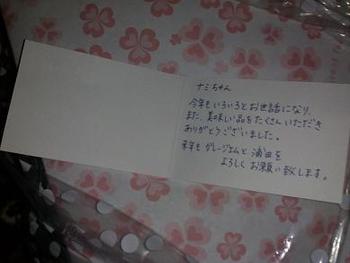 ナミちゃん
今年もいろいろとお世話になり、
また、美味しい品をたくさんいただき
ありがとうございました。
来年も グレージュと 浦田を
よろしく お願い致します。